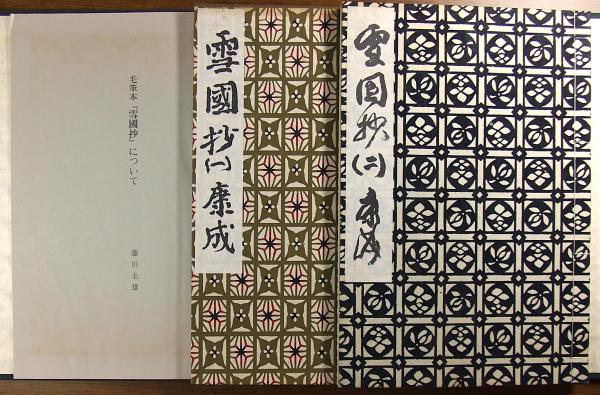 毛筆本『雪國抄』について
藤田圭雄
雪國抄(一)康成
雪国抄(二)康成